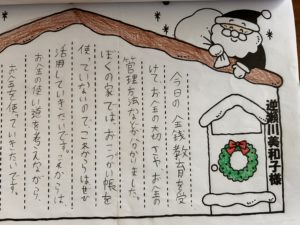 逆瀬川美和子様
今日の金銭教育を受
けてお金の大切さやお金の
管理方法などがわかりました。
ぼくの家では、おこづかい帳を
使っていないので、これからはぜひ
活用していきたいです。これからは、
お金の使い道を考えながら、
お金を使っていきたいです。